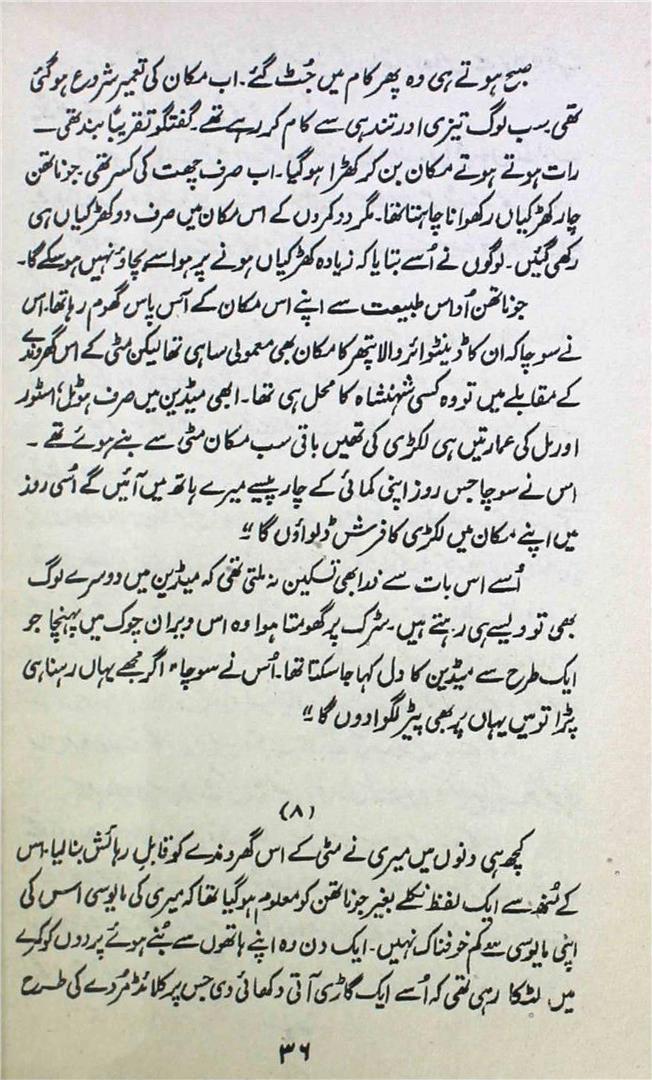 صبح ہوتے ہی وہ پھر کام میں جُٹ گئے۔ اب مکان کی تعمیر شروع ہوگئی
تھی۔ سب لوگ تیزی اور تندہی سے کام کر رہے تھے۔ گفتگو تقریباً بند تھی۔
رات ہوتے ہوتے مکان بن کر کھڑا ہوگیا۔ اب صرف چھت کی کسر تھی۔ جوناتھن
چار کھڑکیاں رکھوانا چاہتا تھا۔ مگر دو کمروں کے اس مکان میں صرف دو کھڑکیاں ہی
رکھی گئیں۔ لوگوں نے اُسے بتایا کہ زیادہ کھڑکیاں ہونے پر ہوا سے بچاؤ نہیں ہوسکے گا۔
جوناتھن اُداس طبیعت سے اپنے اس مکان کے آس پاس گھوم رہا تھا۔ اس
نے سوچا کہ ان کا ڈینٹوائر والا پتھر کا مکان بھی معمولی سا ہی تھا لیکن مٹی کے اس گھروندے
کے مقابلے میں تو وہ کسی شہنشاہ کا محل ہی تھا۔ ابھی میڈین میں صرف ہوٹل، اسٹور
اور بل کی عمارتیں ہی لکڑی کی تھیں باقی سب مکان مٹی سے بنے ہوئے تھے۔
اس نے سوچا جس روز اپنی کمائی کے چار پیسے میرے ہاتھ میں آئیں گے اُسی روز
میں اپنے مکان میں لکڑی کا فرش ڈلواؤں گا"
اُسے اس بات سے ذرا بھی تسکین نہ ملتی تھی کہ میڈین میں دوسرے لوگ
بھی تو ویسے ہی رہتے ہیں۔ سڑک پر گھومتا ہوا وہ اس ویران چوک میں پہنچا جو
ایک طرح سے میڈین کا دل کہا جاسکتا تھا۔ اُس نے سوچا "اگر مجھے یہاں رہنا ہی
پڑا تو میں یہاں پر بھی پیڑ لگوادوں گا"
(۸)
کچھ ہی دنوں میں میری نے مٹی کے اس گھروندے کو قابلِ رہائش بنا لیا۔ اس
کے مُنھ سے ایک لفظ نکلے بغیر جوناتھن کو معلوم ہوگیا تھا کہ میری کی مایوسی اس کی
اپنی مایوسی سے کم خوفناک نہیں۔ ایک دن وہ اپنے ہاتھوں سے بُنے ہوئے پردوں کو کمرے
میں لٹکا رہی تھی کہ اُسے ایک گاڑی آتی دکھائی دی جس پر کلائڈ مُردے کی طرح
۳۶